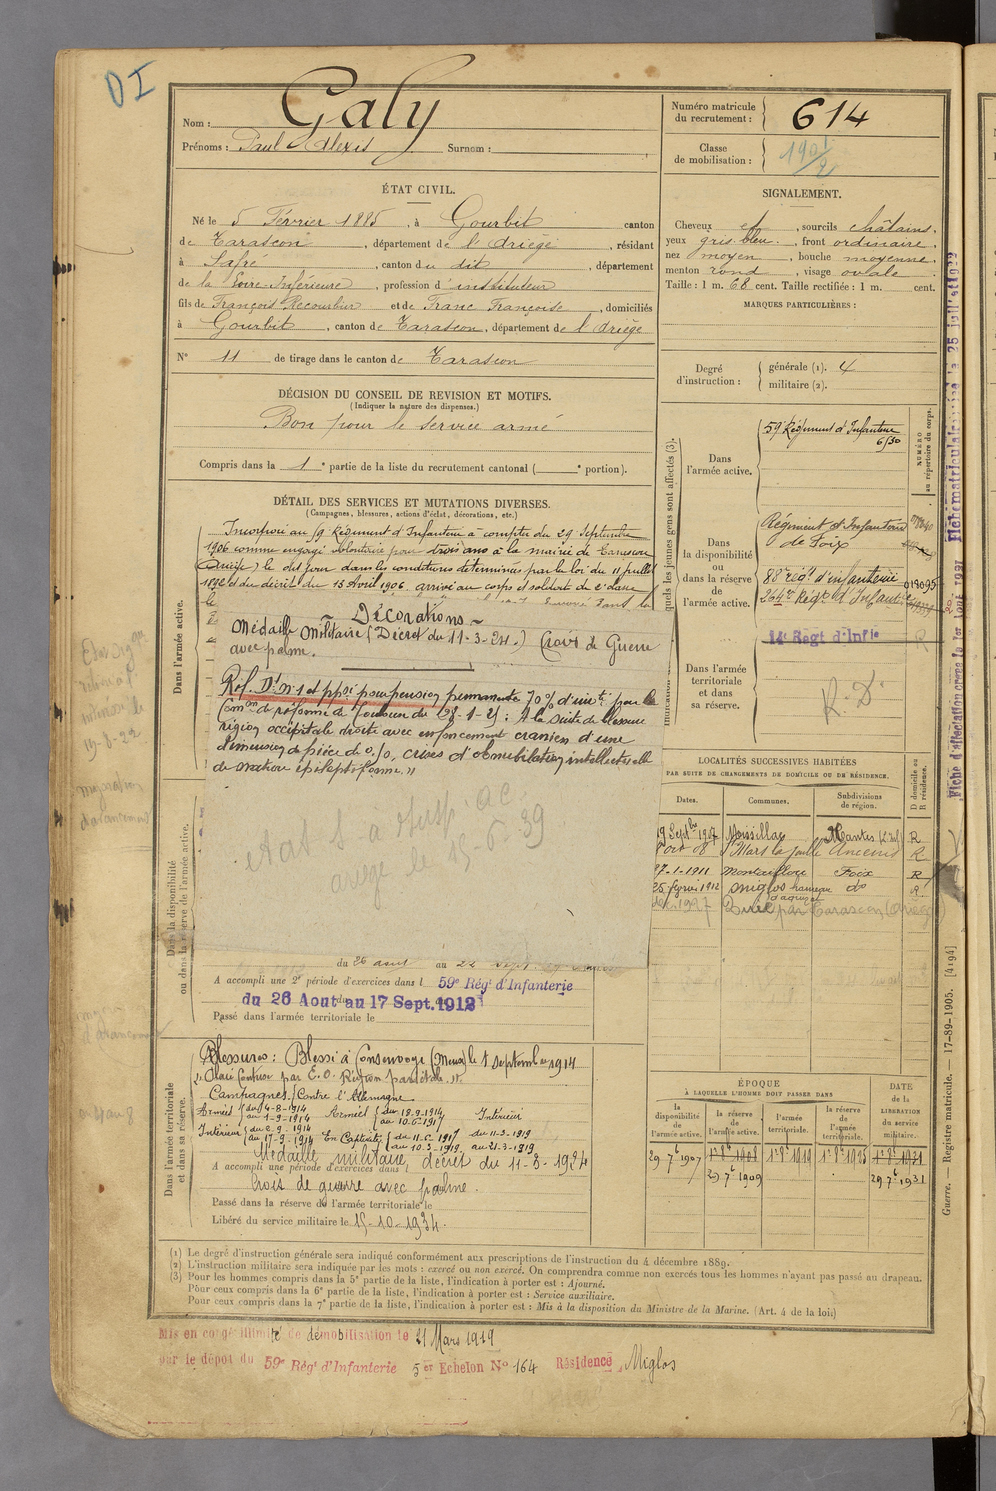 DI
Nom : Galy
Prénoms : Paul Alexis Surnom :
Numéro matricule du recrutement : 614
Classe de mobilisation :
ÉTAT CIVIL.
Né le 5 Février 1885, à Gourbit canton
de Tarascon, département de l'Ariège, résidant
à Safré, canton du dit, département
de la Loire-Inférieure, profession d'instituteur
fils de François Recourbur et de Franc Françoise, domiciliés
à Gourbit, canton de Tarascon, département de l'Ariège
N° 11 de tirage dans le canton de Tarascon
SIGNALEMENT.
Cheveux et, sourcils châtains.
yeux gris-bleu, front ordinaire,
nez moyen, bouche moyenne,
menton rond, visage ovale.
Taille : 1 m. 68 cent. Taille rectifiée : 1 m. cent.
MARQUES PARTICULIÈRES :
Degré d'instruction : générale (1). 4
militaire (2).
DÉCISION DU CONSEIL DE REVISION ET MOTIFS.
(Indiquer la nature des dispenses.)
Bon pour le service armé
Compris dans la 1e partie de la liste du recrutement cantonal ( e portion).
DÉTAIL DES SERVICES ET MUTATIONS DIVERSES.
(Campagnes, blessures, actions d'éclat, décorations, etc.)
Dans l'armée active.
Incorporé au 59e Régiment d'Infanterie à compter du 29 Septembre
1906 comme engagé volontaire pour trois ans à la mairie de Tarascon
(Ariège) le dit jour dans les conditions déterminées par la loi du 11 juillet
1892 et du décret du 13 Avril 1906, arrivé au corps et soldat de 2e classe
le
Décorations
Médaille Militaire (Décret du 11-3-24.) Croix de Guerre
avec palme.
Réf. Dt n°1 et ppsé pour pension permanente 70% d'inv.té par la
Comon de réforme de Toulouse du 28-1-25 : A la suite de blessure
région occipitale droite avec enfoncement cranien d'une
dimension de pièce de 0,10, crises d'obnubilation intellectuelle
de nature épileptiforme."
etat S à Husp ac
ariege le 15-6-39
Dans la disponibilité ou dans la réserve de l'armée active.
du 26 aout au 22 sept.
A accompli une 2e période d'exercices dans l 59e Régt d'Infanterie
du 26 Aout au 17 Sept. 1912
Passé dans l'armée territoriale le
Dans l'armée territoriale et dans sa réserve.
Blessures : Blessé à Consenvoye (Meuse) le 1 septembre 1914
Campagnes : Contre l'Allemagne
Armées du 4-8-1914 au 1-9-1914 Armées du 18-9-1914 au 10-6-1917 Intérieur
Intérieur du 2-9-1914 au 17-9-1914 En Captivité du 11-6-1917 au 10-3-1919 du 11-3-1919 au 21-3-1919
Médaille militaire, décret du 11-3-1924
A accompli une période d'exercices dans l
Croix de guerre avec palme.
Passé dans la réserve de l'armée territoriale le
Libéré du service militaire le 15-10-1934.
quels les jeunes gens sont affectés (3).
NUMÉRO au répertoire du corps.
Dans l'armée active.
59e Régiment d'Infanterie
6/30
Dans la disponibilité ou dans la réserve de l'armée active.
Régiment d'Infanterie
de Foix
88e régt d'infanterie 019095
264e Régt d'Infant.
14e Régt d'Infie R
Dans l'armée territoriale et dans sa réserve.
R. D.
LOCALITÉS SUCCESSIVES HABITÉES
PAR SUITE DE CHANGEMENTS DE DOMICILE OU DE RÉSIDENCE.
Dates. Communes. Subdivisions de région. D domicile ou R résidence.
19 Septbre 1907 Moissillac Nantes (L. Inf) R
7 oct 08 St Mars la Jaille Ancenis R
27-1-1911 Montaillou Foix R
25 février 1912 Miglos hameau d'arquizat do R
1927 par Tarascon (Ariège)
ÉPOQUE
À LAQUELLE L'HOMME DOIT PASSER DANS
la disponibilité de l'armée active. la réserve de l'armée active. l'armée territoriale. la réserve de l'armée territoriale. DATE de la LIBÉRATION du service militaire.
29 7bre 1907 1er 8bre 1908 1er 8bre 1919 1er 8bre 1925 1er 8bre 1931
29 7bre 1909 29 7bre 1931
(1) Le degré d'instruction générale sera indiqué conformément aux prescriptions de l'instruction du 4 décembre 1889.
(2) L'instruction militaire sera indiquée par les mots : exercé ou non exercé. On comprendra comme non exercés tous les hommes n'ayant pas passé au drapeau.
(3) Pour les hommes compris dans la 5e partie de la liste, l'indication à porter est : Ajourné.
Pour ceux compris dans la 6e partie de la liste, l'indication à porter est : Service auxiliaire.
Pour ceux compris dans la 7e partie de la liste, l'indication à porter est : Mis à la disposition du Ministre de la Marine. (Art. 4 de la loi.)
Mis en congé illimité de démobilisation le 21 Mars 1919
par le dépot du 59e Régt d'Infanterie 5er Echelon N° 164 Résidence Miglos
Guerre. — Registre matricule. — 17-89-1905. [4194]